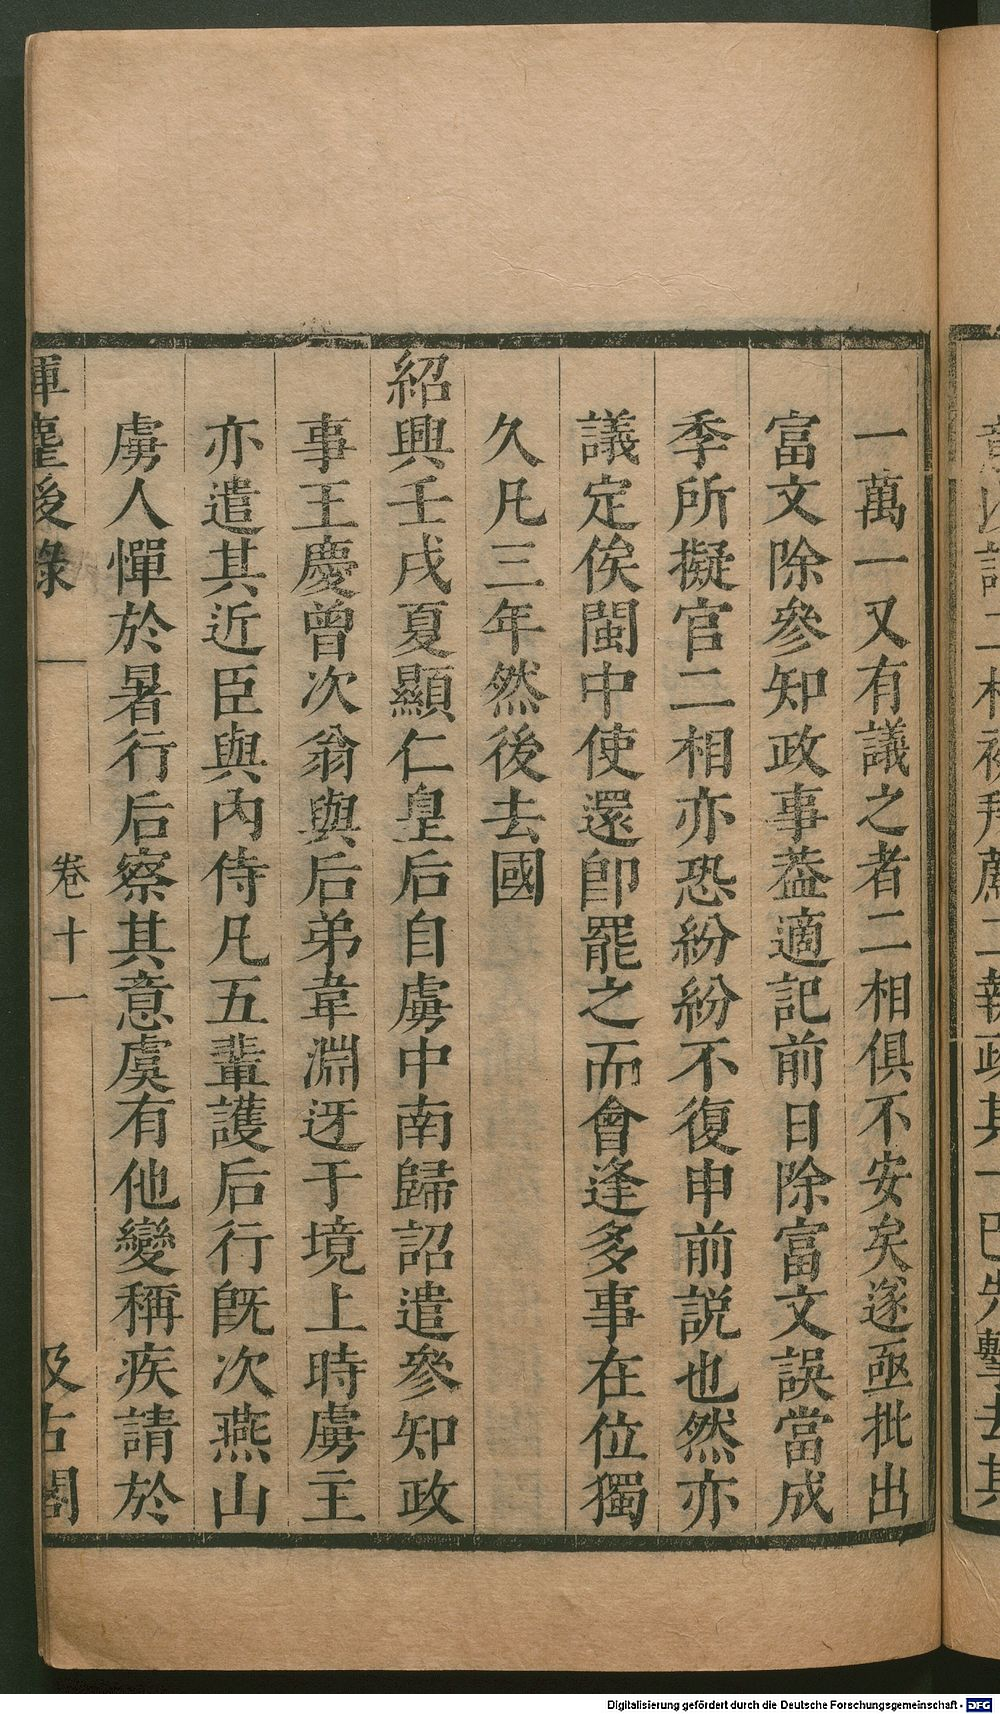 一萬一又有議之者二相俱不安矣遂亟批出
富文除參知政事葢適記前日除富文誤當成
季所擬官二相亦恐紛紛不復申前説也然亦
議定俟閩中使還卽罷之而會逢多事在位獨
久凡三年然後去國
紹興壬戌夏顯仁皇后自虜中南歸詔遣參知政
事王慶曾次翁與后弟韋淵迓于境上時虜主
亦遣其近臣與內侍凡五輩護后行旣次燕山
虜人憚於暑行后察其意虞有他變稱疾請於
揮麈後錄 卷十一 汲古閣
Digitalisierung gefördert durch die Deutsche Forschungsgemeinschaft - DFG